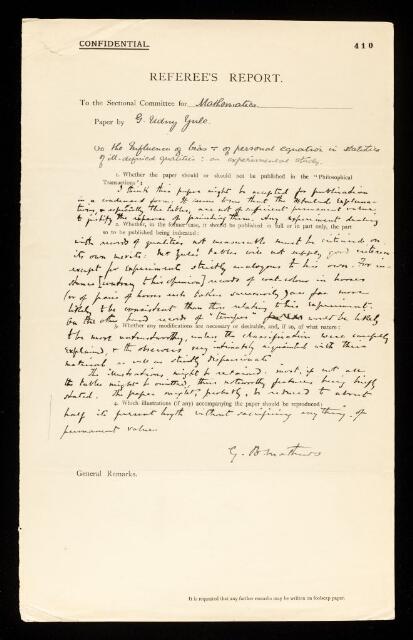 CONFIDENTIAL.
410
REFEREE'S REPORT.
To the Sectional Committee for Mathematics
Paper by G. Udny Yule.
On the Influence of bias & of personal equation in statistics
of ill-defined qualities : an experimental study.
1. Whether the paper should or should not be published in the "Philosophical
Transactions":
I think this paper might be accepted for publication
in a condensed form. It seems to me that the detailed
and especially the tables, are not of sufficient permanent value
to justify the expense of printing them. Any experiment dealing
2. Whether, in the former case, it should be published in full or in part only, the part
so to be published being indicated:
with record of qualities not measurable must be criticised on
its own merits: Mr Yule's tables will not supply good
except for experiments strictly analogous to his own. For in-
stance [contrary to his opinion] records of eatcolour in horses
(or of pairs of horses each taken separately) are far more
likely to be consistent than those relating to this experiment.
On the other hand records of 'temper' would be likely
3. Whether any modifications are necessary or desirable, and, if so, of what nature:
to be most untrustworthy, unless the classification were carefully
explained, & the observers very intimately acquainted with their
material as well as strictly dispassionate.
The illustrations might be retained: most, if not all
the tables might be omitted, their noteworthy features being briefly
stated. The paper might, probably, be reduced to about
4. Which illustrations (if any) accompanying the paper should be reproduced:
half its present length without sacrificing anything of
permanent value.
G. B. Mathews
General Remarks.
It is requested that any further remarks may be written on foolscap paper.